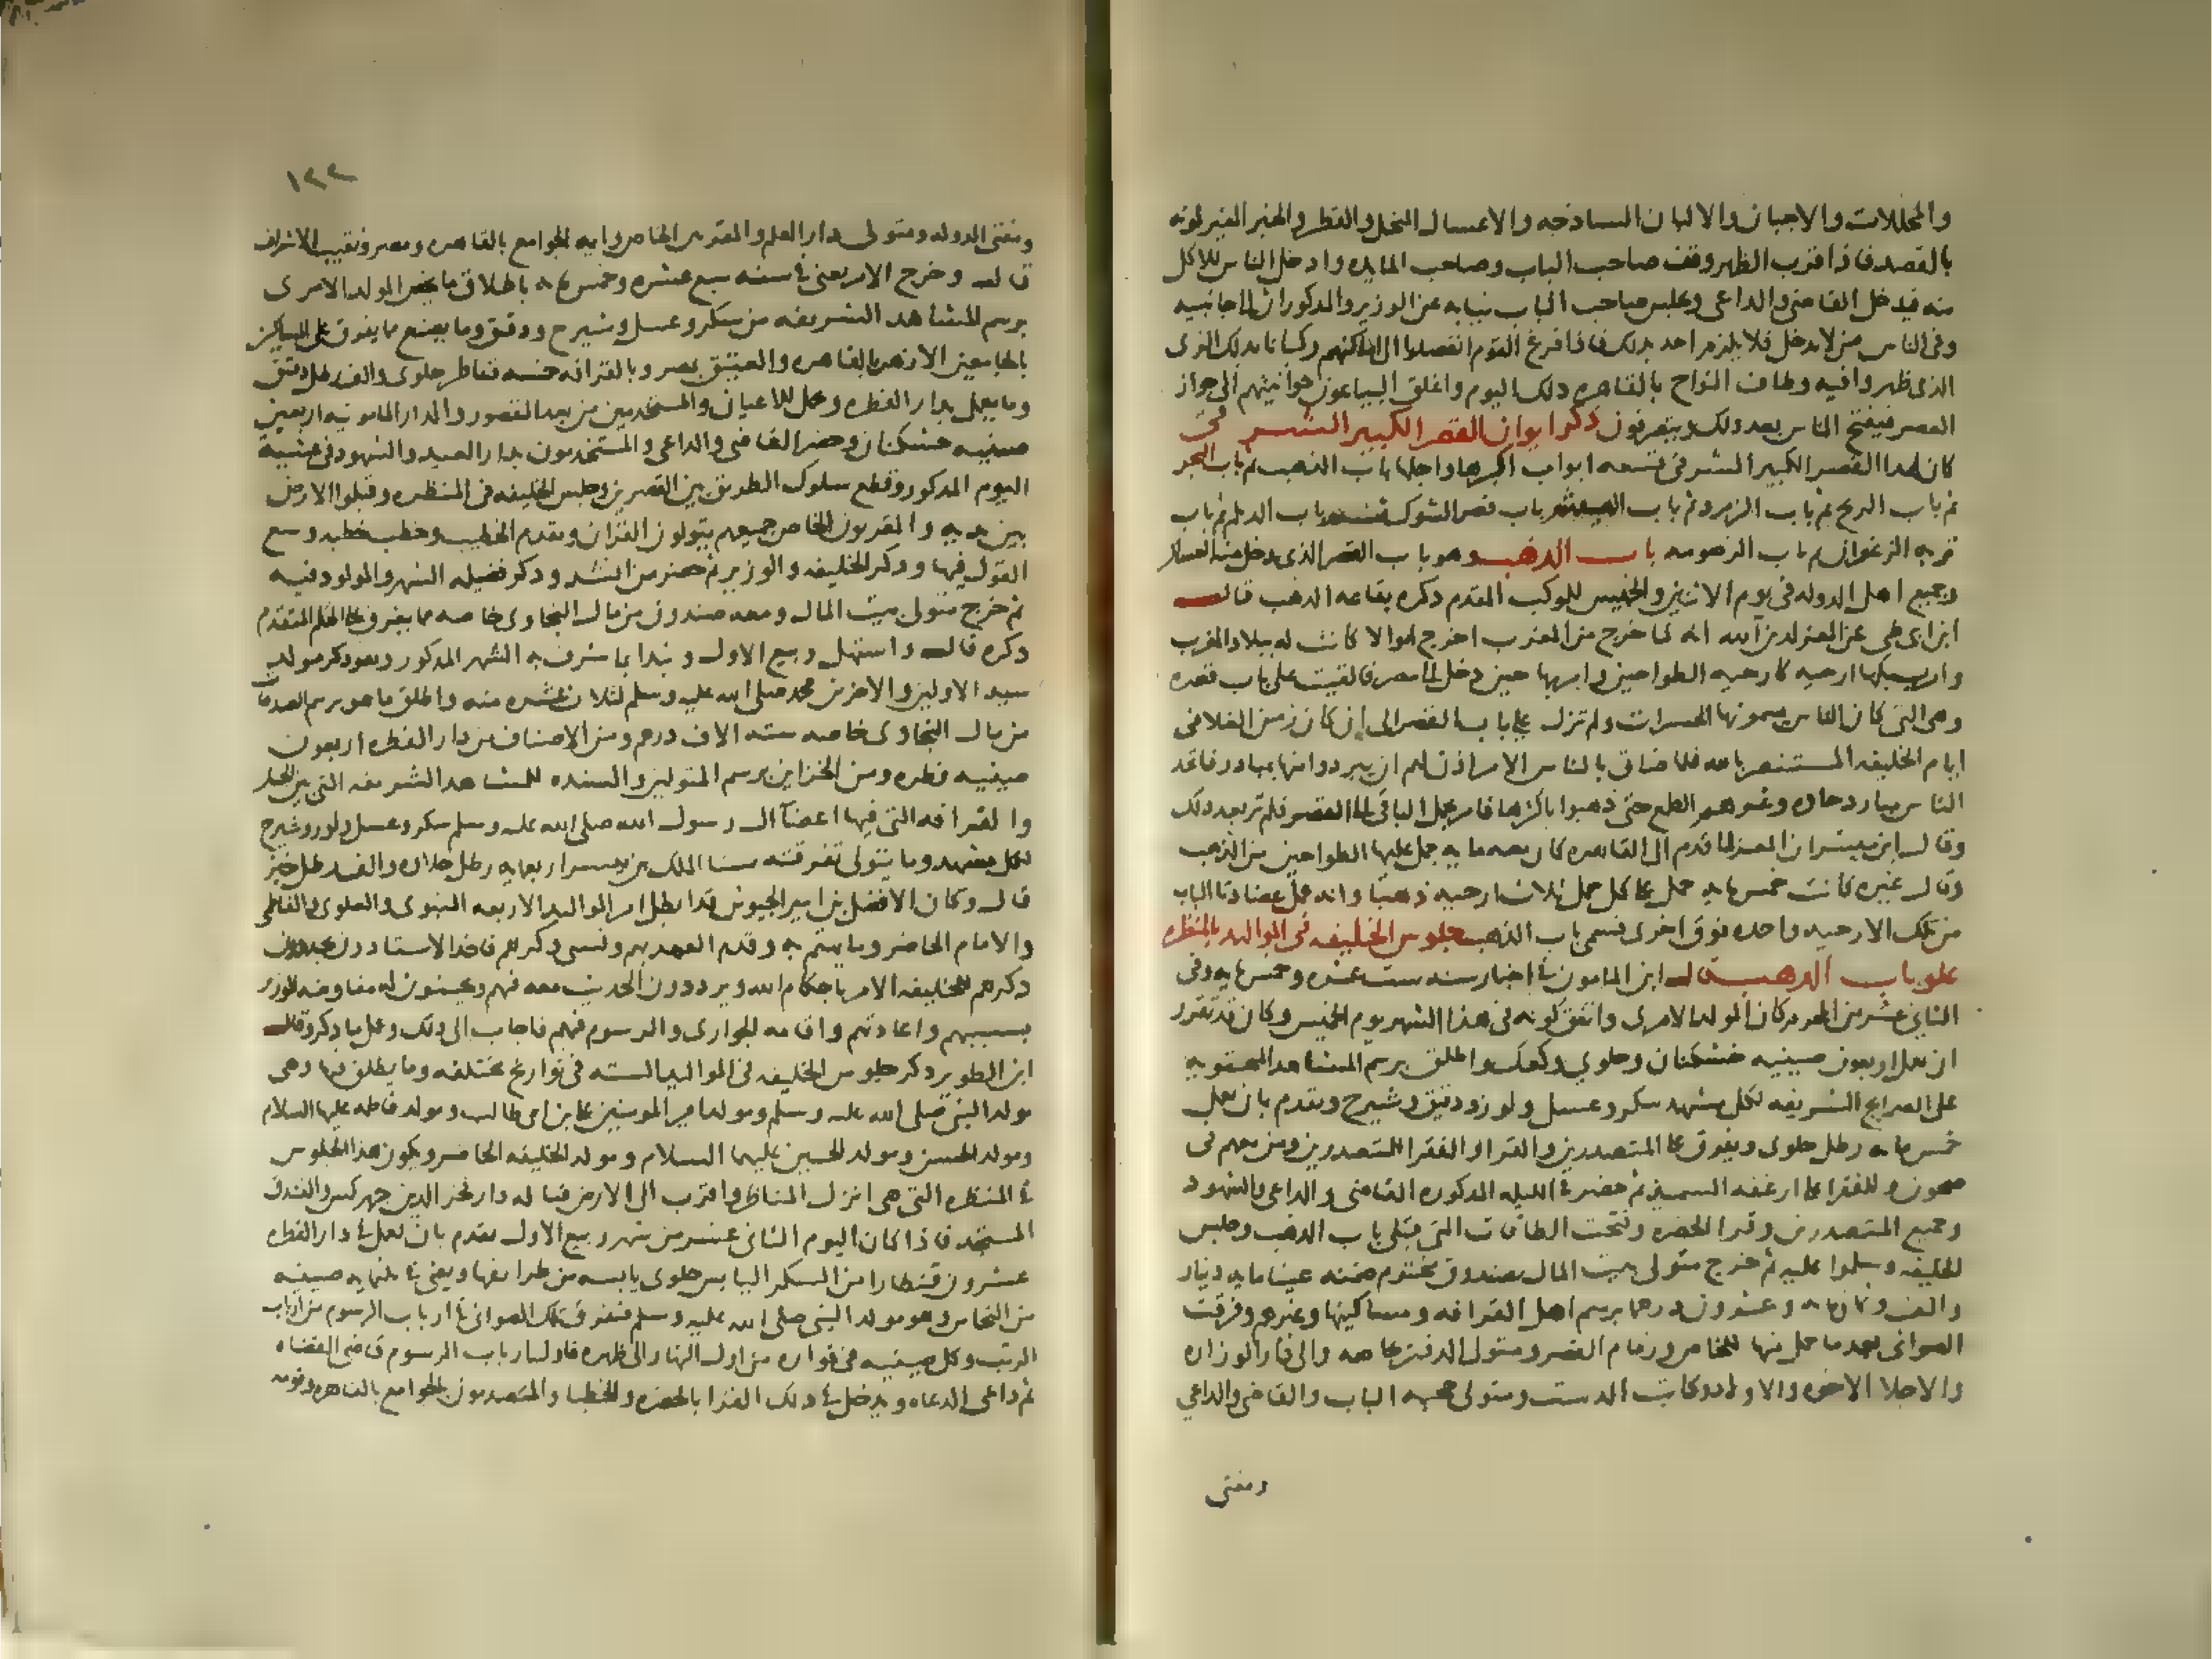 والمخللات والاجبان والالبان الساذجه والاعسال النحل والقطر والخبز الغير لونه
بالقصد فاذا قرب الظهر وقف صاحب الباب وصاحب المايده وادخل الناس للاكل
منه فيدخل القاضى والداعى وجلس صاحب الباب نيابه عن الوزير والمذكوران الى جانبيه
وفى الناس من لا يدخل فلا يلزم احد بذلك فاذا فرغ القوم انفصلوا الى اماكنهم ركبانا بذلك الزى
الذى ظهروا فيه وطاف النواح بالقاهره ذلك اليوم واغلق البياعون حوانيتهم الى جواز
العصر فيفتح الناس بعد ذلك ويتصرفون ذكر ابواب القصر الكبير الشرقى
كان لهذا القصر الكبير الشرقى تسعه ابواب اكبرها واجلها باب الذهب ثم باب البحر
ثم باب الريح ثم باب الزمرد ثم باب العيد ثم باب قصر الشوك ثم باب الديلم ثم باب
تربه الزعفران ثم باب الزهومه باب الذهب وهو باب القصر الذى يدخل منه العساكر
وجميع اهل الدوله فى يوم الاثنين والخميس للموكب المقدم ذكره بقاعه الذهب قال
ابن ابى طى عن المعز لدين الله انه لما خرج من المغرب اخرج اموالا كانت له ببلاد المغرب
وامر بسبكها ارحيه كارحيه الطواحين وامر بها حين دخل الى مصر فالقيت على باب قصره
وهى التى كان الناس يسمونها الحسرات ولم تزل على باب القصر الى ان كان زمن الغلا فى
ايام الخليفه المستنصر بالله فلما ضاق بالناس الامر اذن لهم ان يبردوا منها بمبارد فاتخذ
الناس مبارد حاده وغرهم الطمع حتى ذهبوا باكثرها فامر بحمل الباقى الى القصر فلم تر بعد ذلك
وقال ابن ميسر ان المعز لما قدم الى القاهره كان معه مايه جمل عليها الطواحين من الذهب
وقال غيره كانت خمس مايه جمل على كل جمل ثلاث ارحيه ذهبا وانه عمل عضادتا الباب
من تلك الارحيه واحده فوق اخرى فسمى باب الذهب جلوس الخليفه فى الموالد بالمنظره
علو باب الذهب قال ابن المامون فى اخبار سنه ست عشره وخمس مايه وفى
الثانى عشر من المحرم كان المولد الامرى واتفق كونه فى هذا الشهر يوم الخميس وكان قد تقرر
ان يعمل اربعون صينيه خشكنان وحلوى وكعك واطلق برسم المشاهد المحتويه
على الضرايح الشريفه لكل مشهد سكر وعسل ولوز ودقيق وشيرج وتقدم بان يعمل
خمس مايه رطل حلوى ويفرق على المتصدرين والقراء والفقرا للمتصدرين ومن معهم فى
صحون وللفقرا على ارغفه السميذ ثم حضر فى الليله المذكوره القاضى والداعى والشهود
وجميع المتصدرين وقرا الحضره وفتحت الطاقات التى قبلى باب الذهب وجلس
الخليفه وسلموا عليه ثم خرج متولى بيت المال بصندوق مختوم ضمنه عينا مايه دينار
والف وثمان مايه وعشرون درهما برسم اهل القرافه ومساكينها وغيرهم وفرقت
الصوانى بعد ما حمل منها للخاص وزمام القصر ومتولى الدفتر خاصه والى دار الوزاره
والاجلا الاخوه والاولاد وكاتب الدست ومتولى حجبه الباب والقاضى والداعى
ومفتى
١٢٢
ومفتى الدوله ومتولى دار العلم والمقربين الخاص وايمه الجوامع بالقاهره ومصر ونقيب الاشراف
قال وخرج الامر يعنى فى سنه سبع عشره وخمس مايه باطلاق ما يخص المولد الامرى
برسم المشاهد الشريفه من سكر وعسل وشيرج ودقيق وما يصنع مما يفرق على المساكين
بالجامعين الازهر بالقاهره والعتيق بمصر وبالقرافه خمسه قناطر حلوى والف رطل دقيق
وما يعمل بدار الفطره ويحمل للاعيان والمستخدمين من بعد القصور والدار المامونيه اربعين
صينيه خشكنان وحضر القاضى والداعى والمستخدمون بدار العيد والشهود فى عشيه
اليوم المذكور وقطع سلوك الطريق بين القصرين وجلس الخليفه فى المنظره وقبلوا الارض
بين يديه والمقربون الخاص جميعهم يتولون القران وتقدم الخطيب وخطب خطبه وسع
القول فيها وذكر الخليفه والوزير ثم حضر من انشد وذكر فضيله الشهر والمولود فيه
ثم خرج متولى بيت المال ومعه صندوق من مال النجاوى خاصه مما يفرق على الحكم المتقدم
ذكره قال واستهل ربيع الاول ونبدا بما شرف به الشهر المذكور وهو ذكر مولد
سيد الاولين والاخرين محمد صلى الله عليه وسلم لثلاث عشره منه واطلق ما هو برسم الصدقات
من مال النجاوى خاصه سته الاف درهم ومن الاصناف من دار الفطره اربعون
صينيه فطره ومن الخزاين برسم المتولين والسدنه للمشاهد الشريفه التى بين الجبل
والقرافه التى فيها اعضآ ال رسول الله صلى الله عليه وسلم سكر وعسل ولوز وشيرج
لكل مشهد وما يتولى تفرقته سنا الملك بن ميسر اربعمايه رطل حلاوه والف رطل خبز
قال وكان الافضل بن امير الجيوش قد ابطل امر الموالد الاربعه النبوى والعلوى والفاطمى
والامام الحاضر وما يهتم به وقدم العهد بهم ونسى ذكرهم فاخذ الاستادون يجددون
ذكرهم للخليفه الامر باحكام الله ويرددون الحديث معه فيهم ويحسنون له مفاوضه الوزير
بسببهم واعادتهم واقامه الجوارى والرسوم فيهم فاجاب الى ذلك وعمل ما ذكر وقال
ابن الطوير ذكر جلوس الخليفه فى الموالد السته فى تواريخ مختلفه وما يطلق فيها وهى
مولد النبى صلى الله عليه وسلم ومولد امير المومنين على بن ابى طالب ومولد فاطمه عليها السلام
ومولد الحسن ومولد الحسين عليهما السلام ومولد الخليفه الحاضر ويكون هذا الجلوس
فى المنظره التى هى انزل المناظر واقرب الى الارض قباله دار فخر الدين جهركس والفندق
المستجد فاذا كان اليوم الثانى عشر من شهر ربيع الاول تقدم بان يعمل فى دار الفطره
عشرون قنطارا من السكر اليابس حلوى يابسه من طرايفها ويعبى فى ثلثمايه صينيه
من النحاس وهو مولد النبى صلى الله عليه وسلم فتفرق تلك الصوانى فى ارباب الرسوم من ارباب
الرتب وكل صينيه فى قواره من اول النهار الى ظهره فاول ارباب الرسوم قاضى القضاه
ثم داعى الدعاه ويدخل فى ذلك القرا بالحضره والخطبا والمتصدرون بالجوامع بالقاهره وقومه